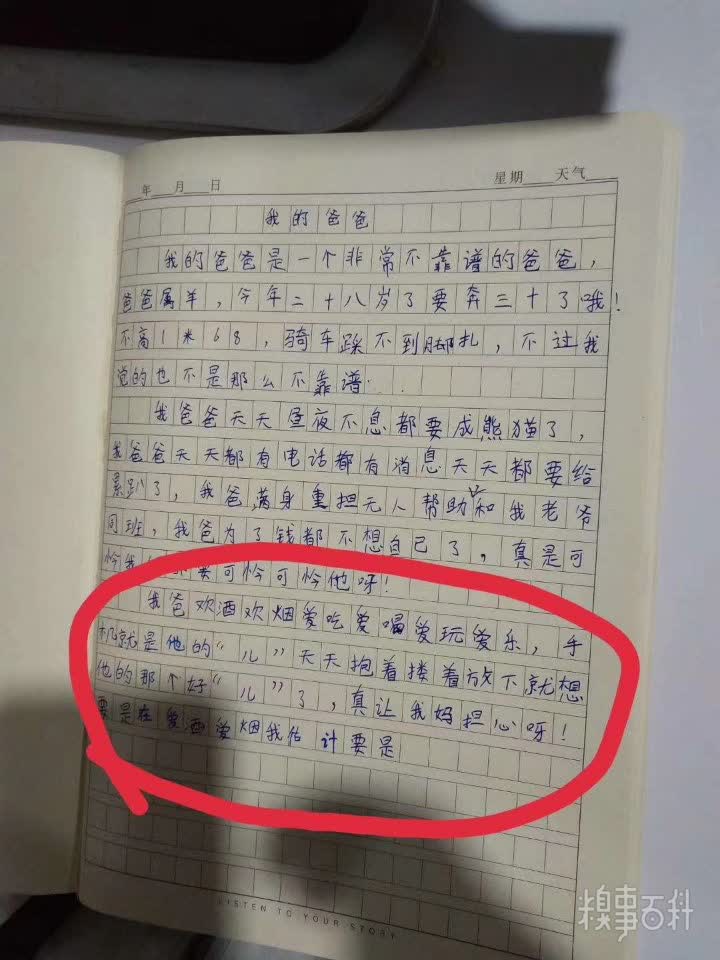 年 月 日 星期 天气
我的爸爸
我的爸爸是一个非常不靠谱的爸爸，
爸爸属羊，今年二十八岁了要奔三十了哦！
不高1米68，骑车踩不到脚扎，不过我
说的也不是那么不靠谱．．
我爸爸天天昼夜不息都要成熊猫了，
我爸爸天天都有电话都有消息天天都要给
累趴了，我爸满身重担无人帮助和我老爷
同班，我爸为了钱都不想自己了，真是可
怜我 可怜可怜他呀！
我爸欢酒欢烟爱吃爱喝爱玩爱乐，手
机就是他的“儿”天天抱着搂着放下就想
他的那个好“儿”了，真让我妈担心呀！
要是在爱酒爱烟我估计要是
LISTEN TO YOUR STORY
糗事百科